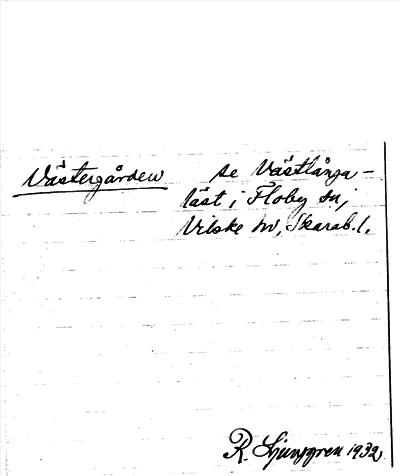 Västergården se Västlånga-
läst i Floby sn,
Vilske hd, Skarab. l.
R. Ljunggren 1932